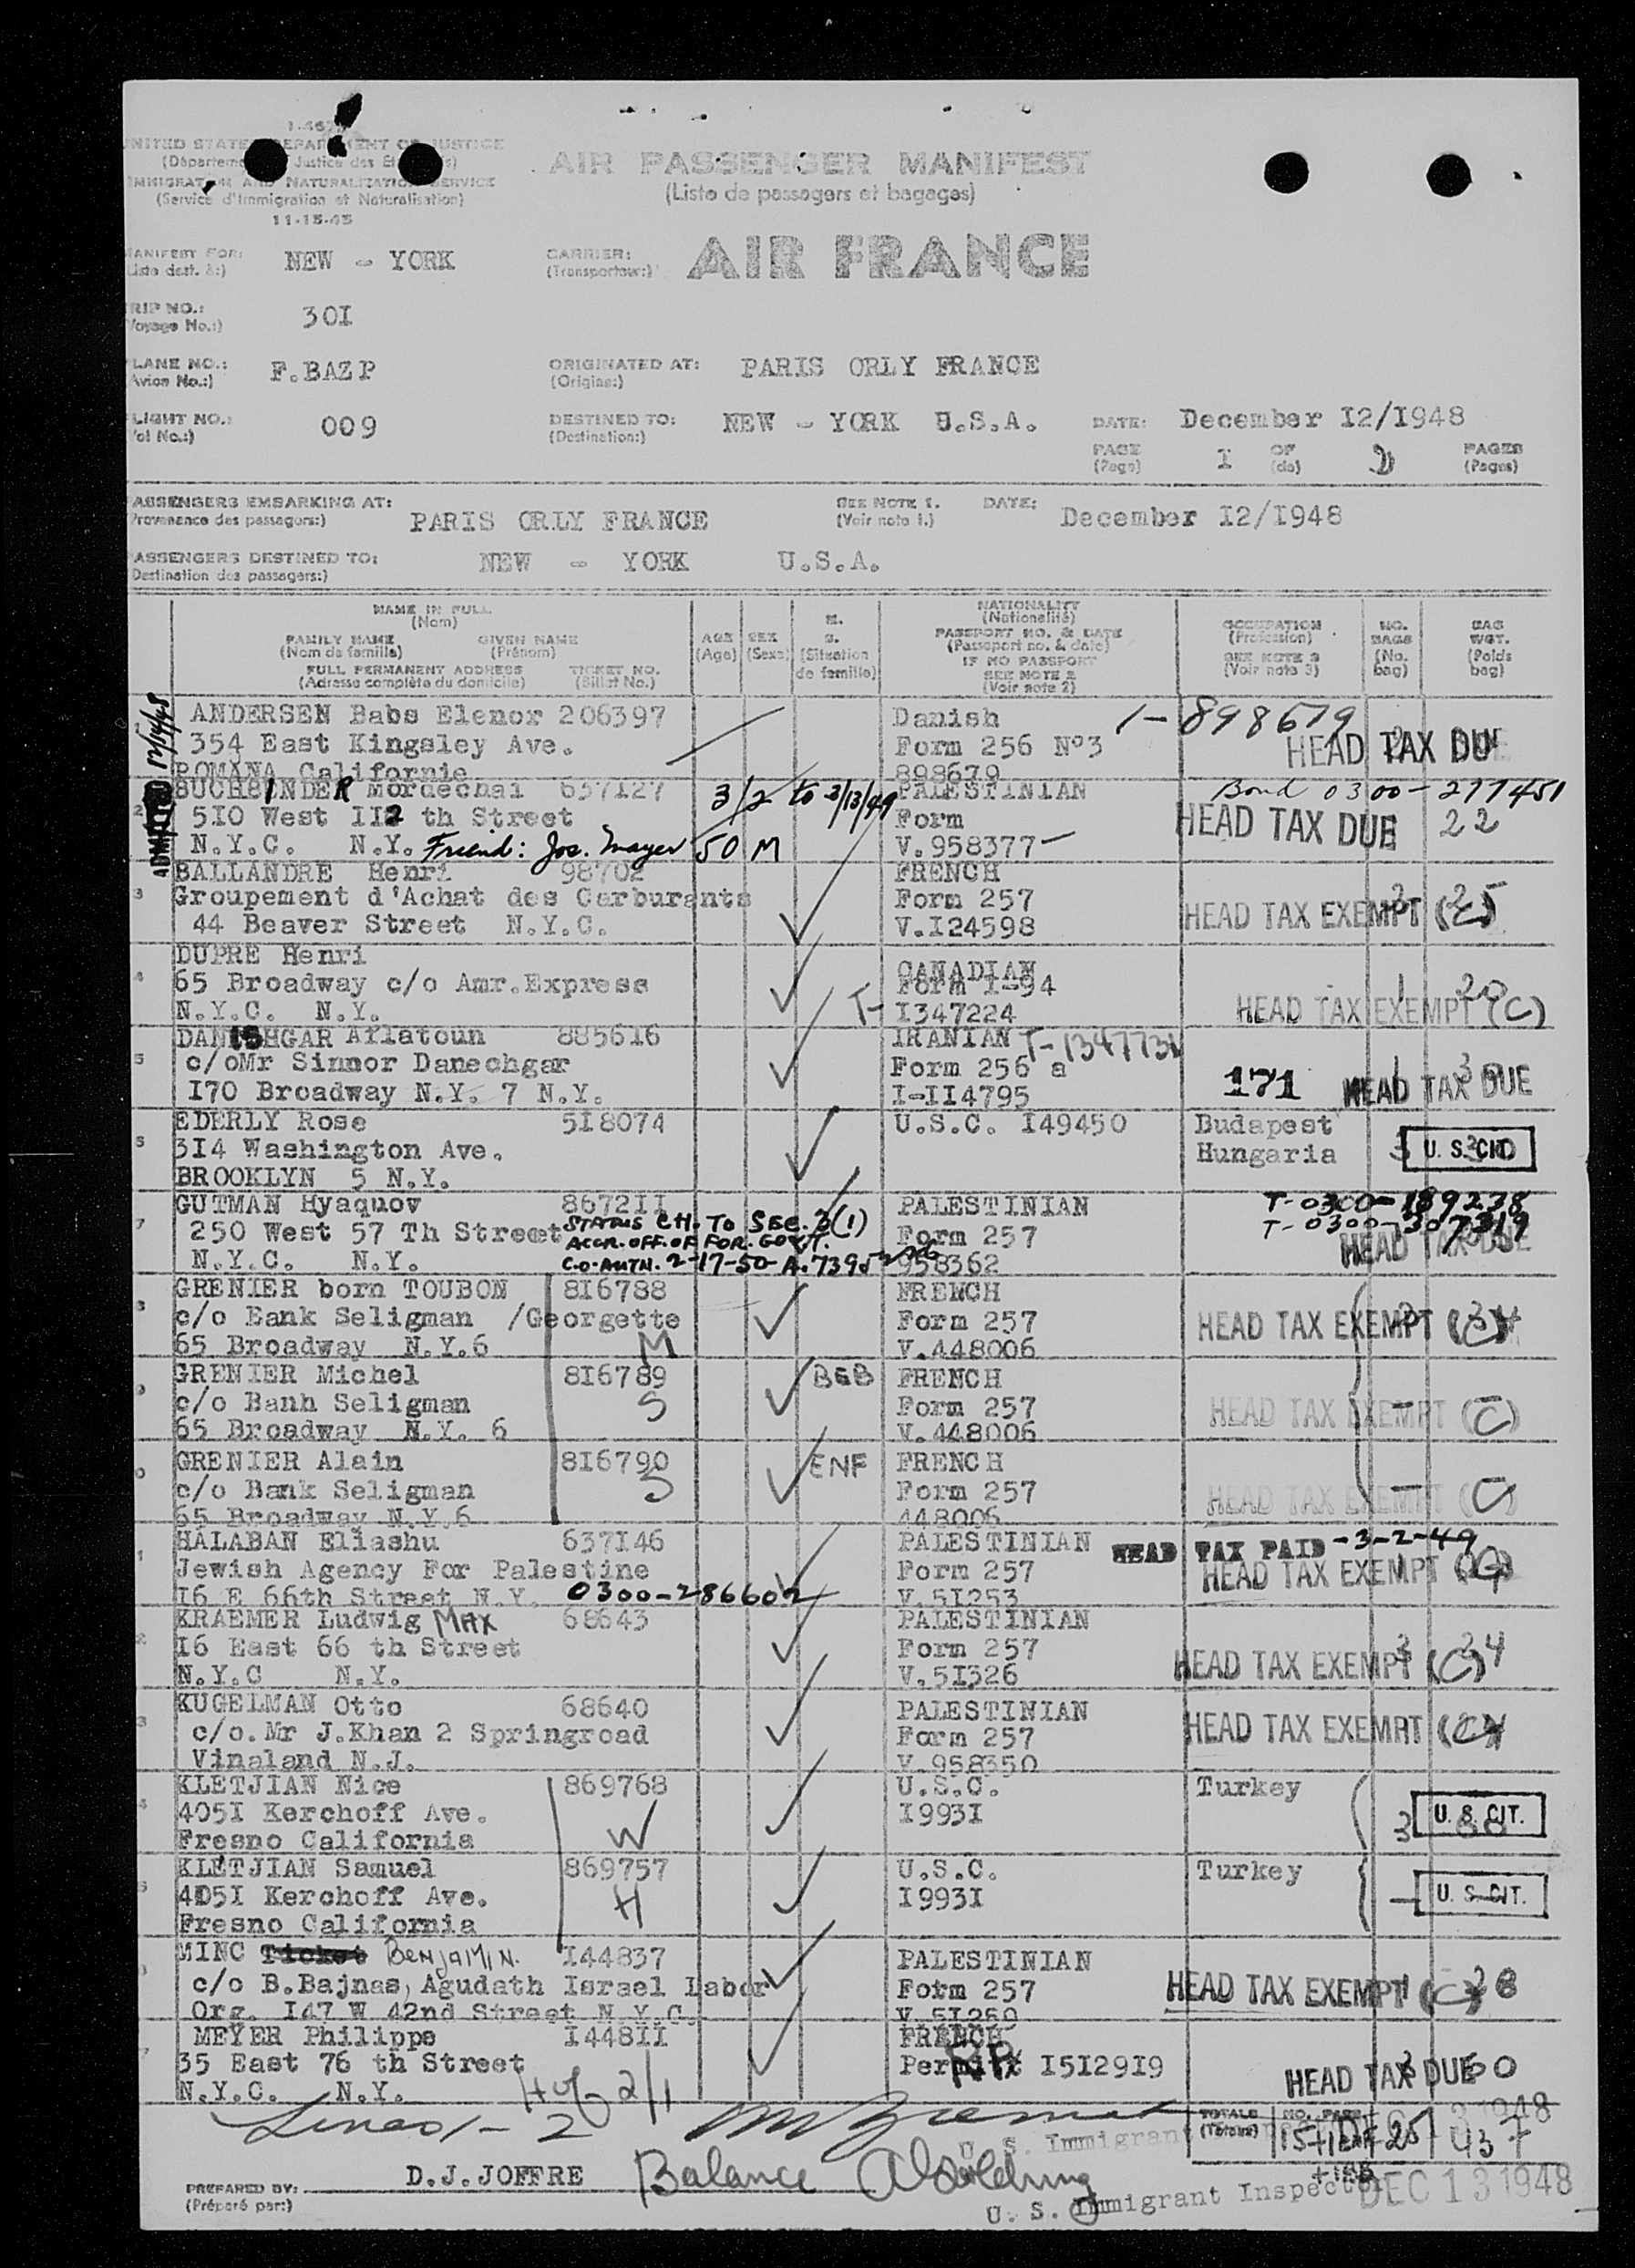 UNITED STATES DEPARTMENT OF JUSTICE
IMMIGRATION AND NATURALIZATION SERVICE
(Service d'Immigration et Naturalisation)
11-15-45
AIR PASSENGER MANIFEST
(Liste de passagers et bagages)
MANIFEST FOR: NEW - YORK
CARRIER: AIR FRANCE
(Transporteur:)
RIP NO.: 30I
Voyage No.:)
LANE NO.: F.BAZP
Avion No.:)
ORIGINATED AT: PARIS ORLY FRANCE
(Origine:)
LIGHT NO.: 009
Vol No.:)
DESTINED TO: NEW - YORK U.S.A.
(Destination:)
DATE: December I2/I948
PAGE I OF PAGES
(Page) (de) (Pages)
ASSENGERS EMBARKING AT: PARIS ORLY FRANCE
Provenance des passagers:)
SEE NOTE 1. DATE: December I2/I948
(Voir note 1.)
ASSENGERS DESTINED TO: NEW - YORK U.S.A.
Destination des passagers:)
NAME IN FULL
(Nom)
FAMILY NAME GIVEN NAME
(Nom de famille) (Prénom)
FULL PERMANENT ADDRESS TICKET NO.
(Adresse complète du domicile) (Billet No.)
AGE
(Age)
SEX
(Sexe)
M.
S.
(Situation
de famille)
NATIONALITY
(Nationalité)
PASSPORT NO. & DATE
(Passeport no. & date)
IF NO PASSPORT
SEE NOTE 2
(Voir note 2)
OCCUPATION
(Profession)
SEE NOTE 3
(Voir note 3)
NO.
BAGS
(No.
bag)
BAG
WGT.
(Poids
bag)
ANDERSEN Babs Elenor 206397 Danish 1-898679
354 East Kingsley Ave. Form 256 N°3 HEAD TAX DUE
POMANA Californie 898679
BUCHBINDER Mordechai 637127 3/2 to 3/13/49 PALESTINIAN Bond 0300-277451
5I0 West II2 th Street Form HEAD TAX DUE 22
N.Y.C. N.Y. Friend: Jos. Mayer 50 M V.958377
BALLANDRE Henri 98702 FRENCH
Groupement d'Achat des Carburants Form 257 HEAD TAX EXEMPT
44 Beaver Street N.Y.C. V.I24598
DUPRE Henri CANADIAN
65 Broadway c/o Amr.Express Form I-94 HEAD TAX EXEMPT (C)
N.Y.C. N.Y. T- I347224
DANISHGAR Aflatoun 885616 IRANIAN
c/oMr Sinnor Danechgar Form 256 a 171 HEAD TAX DUE
I70 Broadway N.Y. 7 N.Y. I-II4795
EDERLY Rose 5I8074 U.S.C. I49450 Budapest
3I4 Washington Ave. Hungaria U. S. CIT.
BROOKLYN 5 N.Y.
GUTMAN Hyaquov 8672II PALESTINIAN T-0300-189238
250 West 57 Th Street STATUS CH. TO SEC. 3(1) Form 257 T-0300-307319
ACCR. OFF. OF FOR. GOVT. HEAD TAX DUE
N.Y.C. N.Y. C.O. AUTH. 2-17-50 958362
GRENIER born TOUBON 8I6788 FRENCH
c/o Bank Seligman /Georgette Form 257 HEAD TAX EXEMPT
65 Broadway N.Y.6 M V.448006
GRENIER Michel 8I6789 BEB FRENCH
c/o Banh Seligman S Form 257 HEAD TAX EXEMPT (C)
65 Broadway N.Y. 6 V.448006
GRENIER Alain 8I6790 ENF FRENCH
c/o Bank Seligman S Form 257 HEAD TAX EXEMPT (C)
65 Broadway N.Y.6 448006
HALABAN Eliashu 637I46 PALESTINIAN HEAD TAX PAID -3-2-49
Jewish Agency For Palestine Form 257 HEAD TAX EXEMPT
I6 E 66th Street N.Y. 0300-286602 V.5I253
KRAEMER Ludwig MAX 68643 PALESTINIAN
I6 East 66 th Street Form 257 HEAD TAX EXEMPT (C)
N.Y.C N.Y. V.5I326
KUGELMAN Otto 68640 PALESTINIAN
c/o.Mr J.Khan 2 Springroad Form 257 HEAD TAX EXEMPT
Vinaland N.J. V.958350
KLETJIAN Nice 869768 U.S.C. Turkey
405I Kerchoff Ave. W I993I U. S. CIT.
Fresno California
KLETJIAN Samuel 869757 U.S.C. Turkey
405I Kerchoff Ave. H I993I U. S. CIT.
Fresno California
MINC BENJAMIN. I44837 PALESTINIAN
c/o B.Bajnas, Agudath Israel Labor Form 257 HEAD TAX EXEMPT (C)
Org. I47 W 42nd Street N.Y.C. V.5I260
MEYER Philippe I448II FRENCH
35 East 76 th Street Permit I5I29I9 HEAD TAX DUE
N.Y.C. N.Y.
Lines 1-2
TOTALS NO. PASS.
(Totaux)
437
U. S. Immigrant
PREPARED BY: D.J.JOFFRE
(Préparé par:)
Balance
U. S. Immigrant Inspector
DEC 13 1948